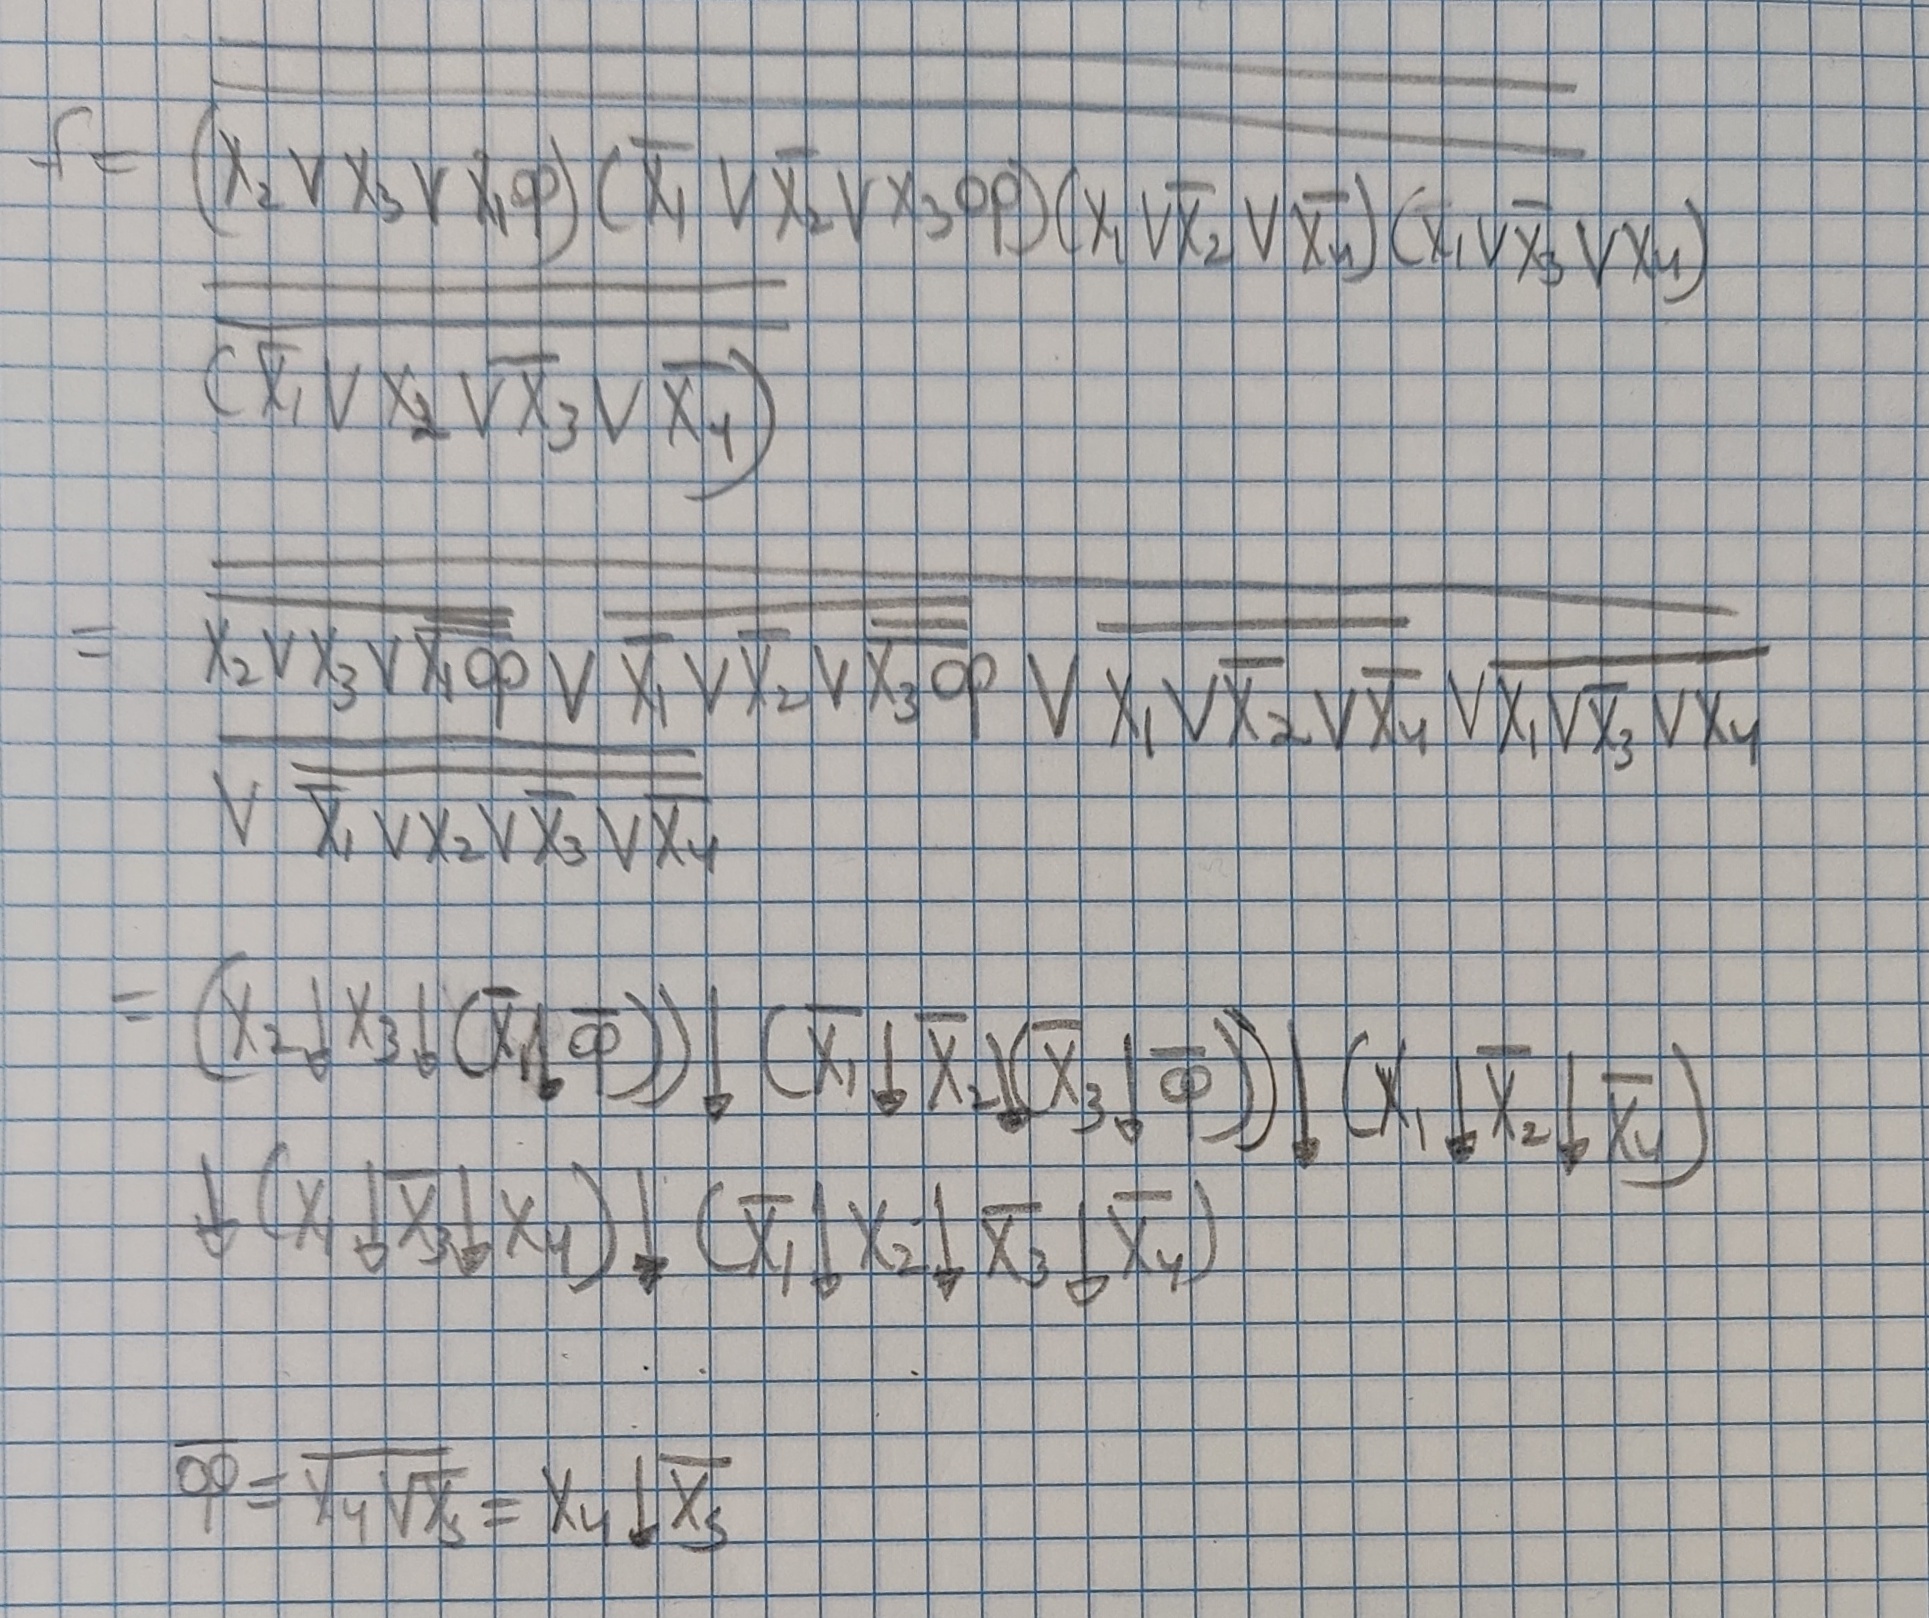 f = \overline{\overline{(x₂ ∨ x₃ ∨ x₁φ)(x̅₁ ∨ x̅₂ ∨ x₃φ)(x₁ ∨ x̅₂ ∨ x̅₄)(x₁ ∨ x̅₃ ∨ x₄)}}
\overline{\overline{(x̅₁ ∨ x₂ ∨ x̅₃ ∨ x̅₄)}}
= \overline{\overline{x₂ ∨ x₃ ∨ \overline{\overline{x₁φ}}} ∨ \overline{x̅₁ ∨ x̅₂ ∨ \overline{\overline{x₃φ}}} ∨ \overline{x₁ ∨ x̅₂ ∨ x̅₄} ∨ \overline{x₁ ∨ x̅₃ ∨ x₄}}
\overline{∨ \overline{x̅₁ ∨ x₂ ∨ x̅₃ ∨ x̅₄}}
= (x₂ ↓ x₃ ↓ (x̅₁ ↓ φ̅)) ↓ (x̅₁ ↓ x̅₂ ↓ (x̅₃ ↓ φ̅)) ↓ (x₁ ↓ x̅₂ ↓ x̅₄)
↓ (x₁ ↓ x̅₃ ↓ x₄) ↓ (x̅₁ ↓ x₂ ↓ x̅₃ ↓ x̅₄)
φ̅ = \overline{x₄ ∨ x̅₅} = x₄ ↓ x̅₅